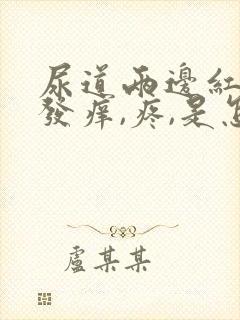 尿道兩邊紅
發痒,疼,是怎
盧某某